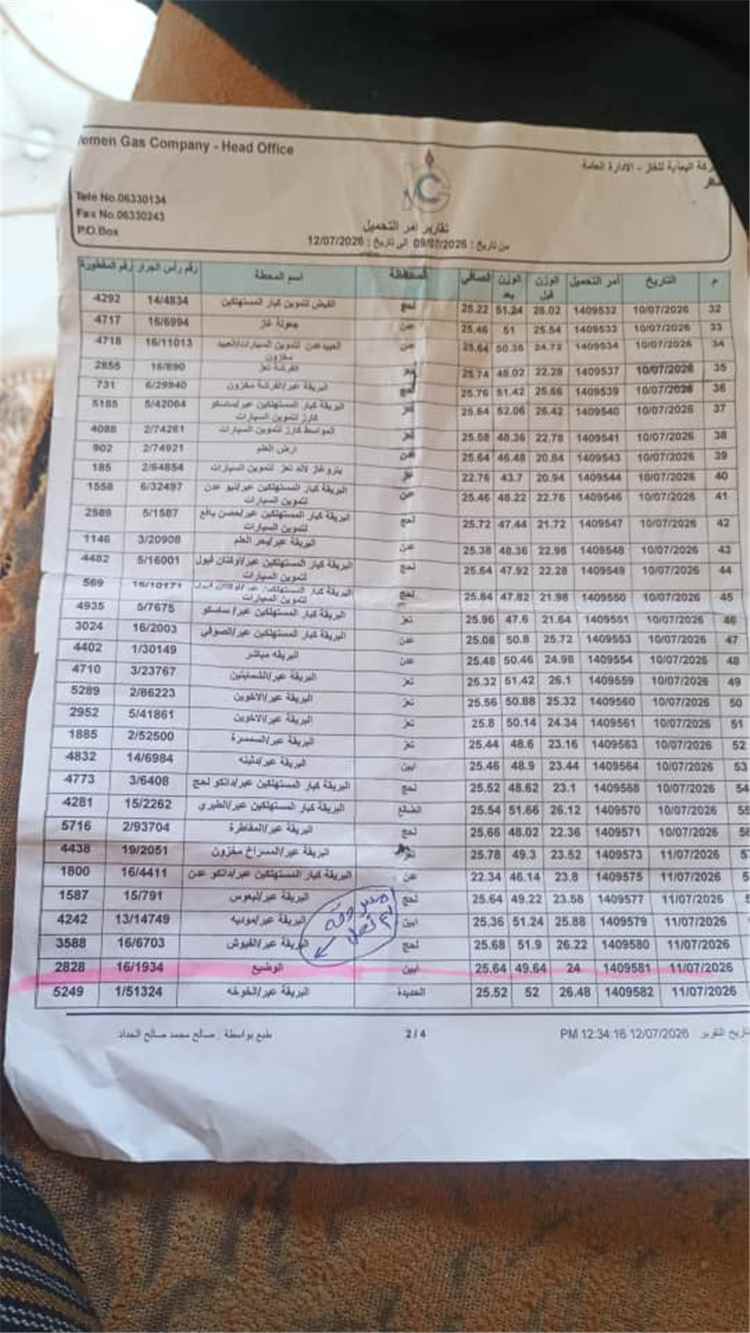 Yemen Gas Company - Head Office
شركة اليمنية للغاز - الادارة العامة
Tele No.06330134
Fax No.06330243
P.O.Box
تقارير امر التحميل
من تاريخ : 09/07/2026 الى تاريخ : 12/07/2026
م التاريخ أمر التحميل الوزن قبل الوزن بعد الصافي المحافظة اسم المحطة رقم رأس الجرار رقم المقطورة
32 10/07/2026 1409532 26.02 51.24 25.22 لحج الفيض لتموين كبار المستهلكين 14/4834 4292
33 10/07/2026 1409533 25.54 51 25.46 عدن جعولة غاز 16/6994 4717
34 10/07/2026 1409534 24.72 50.36 25.64 عدن 16/11013 4718
35 10/07/2026 1409537 22.28 48.02 25.74 تعز الفرشة تعز 16/890 2855
36 10/07/2026 1409539 25.66 51.42 25.76 لحج البريقة عبر/الفرشة مخزون 6/29940 731
37 10/07/2026 1409540 26.42 52.06 25.64 تعز البريقة كبار المستهلكين عبر/ساسكو كارز لتموين السيارات 5/42064 5185
38 10/07/2026 1409541 22.78 48.36 25.58 تعز المواسط كارز لتموين السيارات 2/74261 4088
39 10/07/2026 1409543 20.84 46.48 25.64 عدن ارض العلم 2/74921 902
40 10/07/2026 1409544 20.94 43.7 22.76 تعز بترو غاز لاند تعز لتموين السيارات 2/64854 185
41 10/07/2026 1409546 22.76 48.22 25.46 عدن البريقة كبار المستهلكين عبر/نيو عدن لتموين السيارات 6/32497 1558
42 10/07/2026 1409547 21.72 47.44 25.72 لحج البريقة كبار المستهلكين عبر/حصن يافع لتموين السيارات 5/1587 2589
43 10/07/2026 1409548 22.98 48.36 25.38 عدن البريقة عبر/بحر العلم 3/20908 1146
44 10/07/2026 1409549 22.28 47.92 25.64 لحج البريقة كبار المستهلكين عبر/اوكتان فيول لتموين السيارات 5/16001 4482
45 10/07/2026 1409550 21.98 47.82 25.84 لحج البريقة كبار المستهلكين لتموين السيارات 16/10171 569
46 10/07/2026 1409551 21.64 47.6 25.96 تعز البريقة كبار المستهلكين عبر/ ساسكو 5/7675 4935
47 10/07/2026 1409553 25.72 50.8 25.08 عدن البريقة كبار المستهلكين عبر/الصوفي 16/2003 3024
48 10/07/2026 1409554 24.98 50.46 25.48 عدن البريقه مباشر 1/30149 4402
49 10/07/2026 1409559 26.1 51.42 25.32 تعز البريقة عبر/الشمايتين 3/23767 4710
50 10/07/2026 1409560 25.32 50.88 25.56 تعز البريقة عبر/الاخوين 2/86223 5289
51 10/07/2026 1409561 24.34 50.14 25.8 تعز البريقة عبر/الاخوين 5/41861 2952
52 10/07/2026 1409563 23.16 48.6 25.44 تعز البريقة عبر/السمسرة 2/52500 1885
53 10/07/2026 1409564 23.44 48.9 25.46 ابين البريقة عبر/دثينه 14/6984 4832
54 10/07/2026 1409568 23.1 48.62 25.52 لحج البريقة كبار المستهلكين عبر/دانكو لحج 3/6408 4773
55 10/07/2026 1409570 26.12 51.66 25.54 الضالع البريقة كبار المستهلكين عبر/الطيري 15/2262 4281
56 10/07/2026 1409571 22.36 48.02 25.66 لحج البريقة عبر/المقاطرة 2/93704 5716
57 11/07/2026 1409573 23.52 49.3 25.78 تعز البريقة عبر/المسراخ مخزون 19/2051 4438
11/07/2026 1409575 23.8 46.14 22.34 عدن البريقة كبار المستهلكين عبر/دانكو عدن 16/4411 1800
11/07/2026 1409577 23.58 49.22 25.64 لحج البريقة عبر/لبعوس 15/791 1587
11/07/2026 1409579 25.88 51.24 25.36 ابين البريقة عبر/موديه 13/14749 4242
11/07/2026 1409580 26.22 51.9 25.68 لحج البريقة عبر/الفيوش 16/6703 3588
11/07/2026 1409581 24 49.64 25.64 ابين الوضيع 16/1934 2828
11/07/2026 1409582 26.48 52 25.52 الحديدة البريقة عبر/الخوخه 1/51324 5249
لم تصل
تاريخ التقرير 12/07/2026 12:34:16 PM
2/4
طبع بواسطة : صالح محمد صالح الحداد